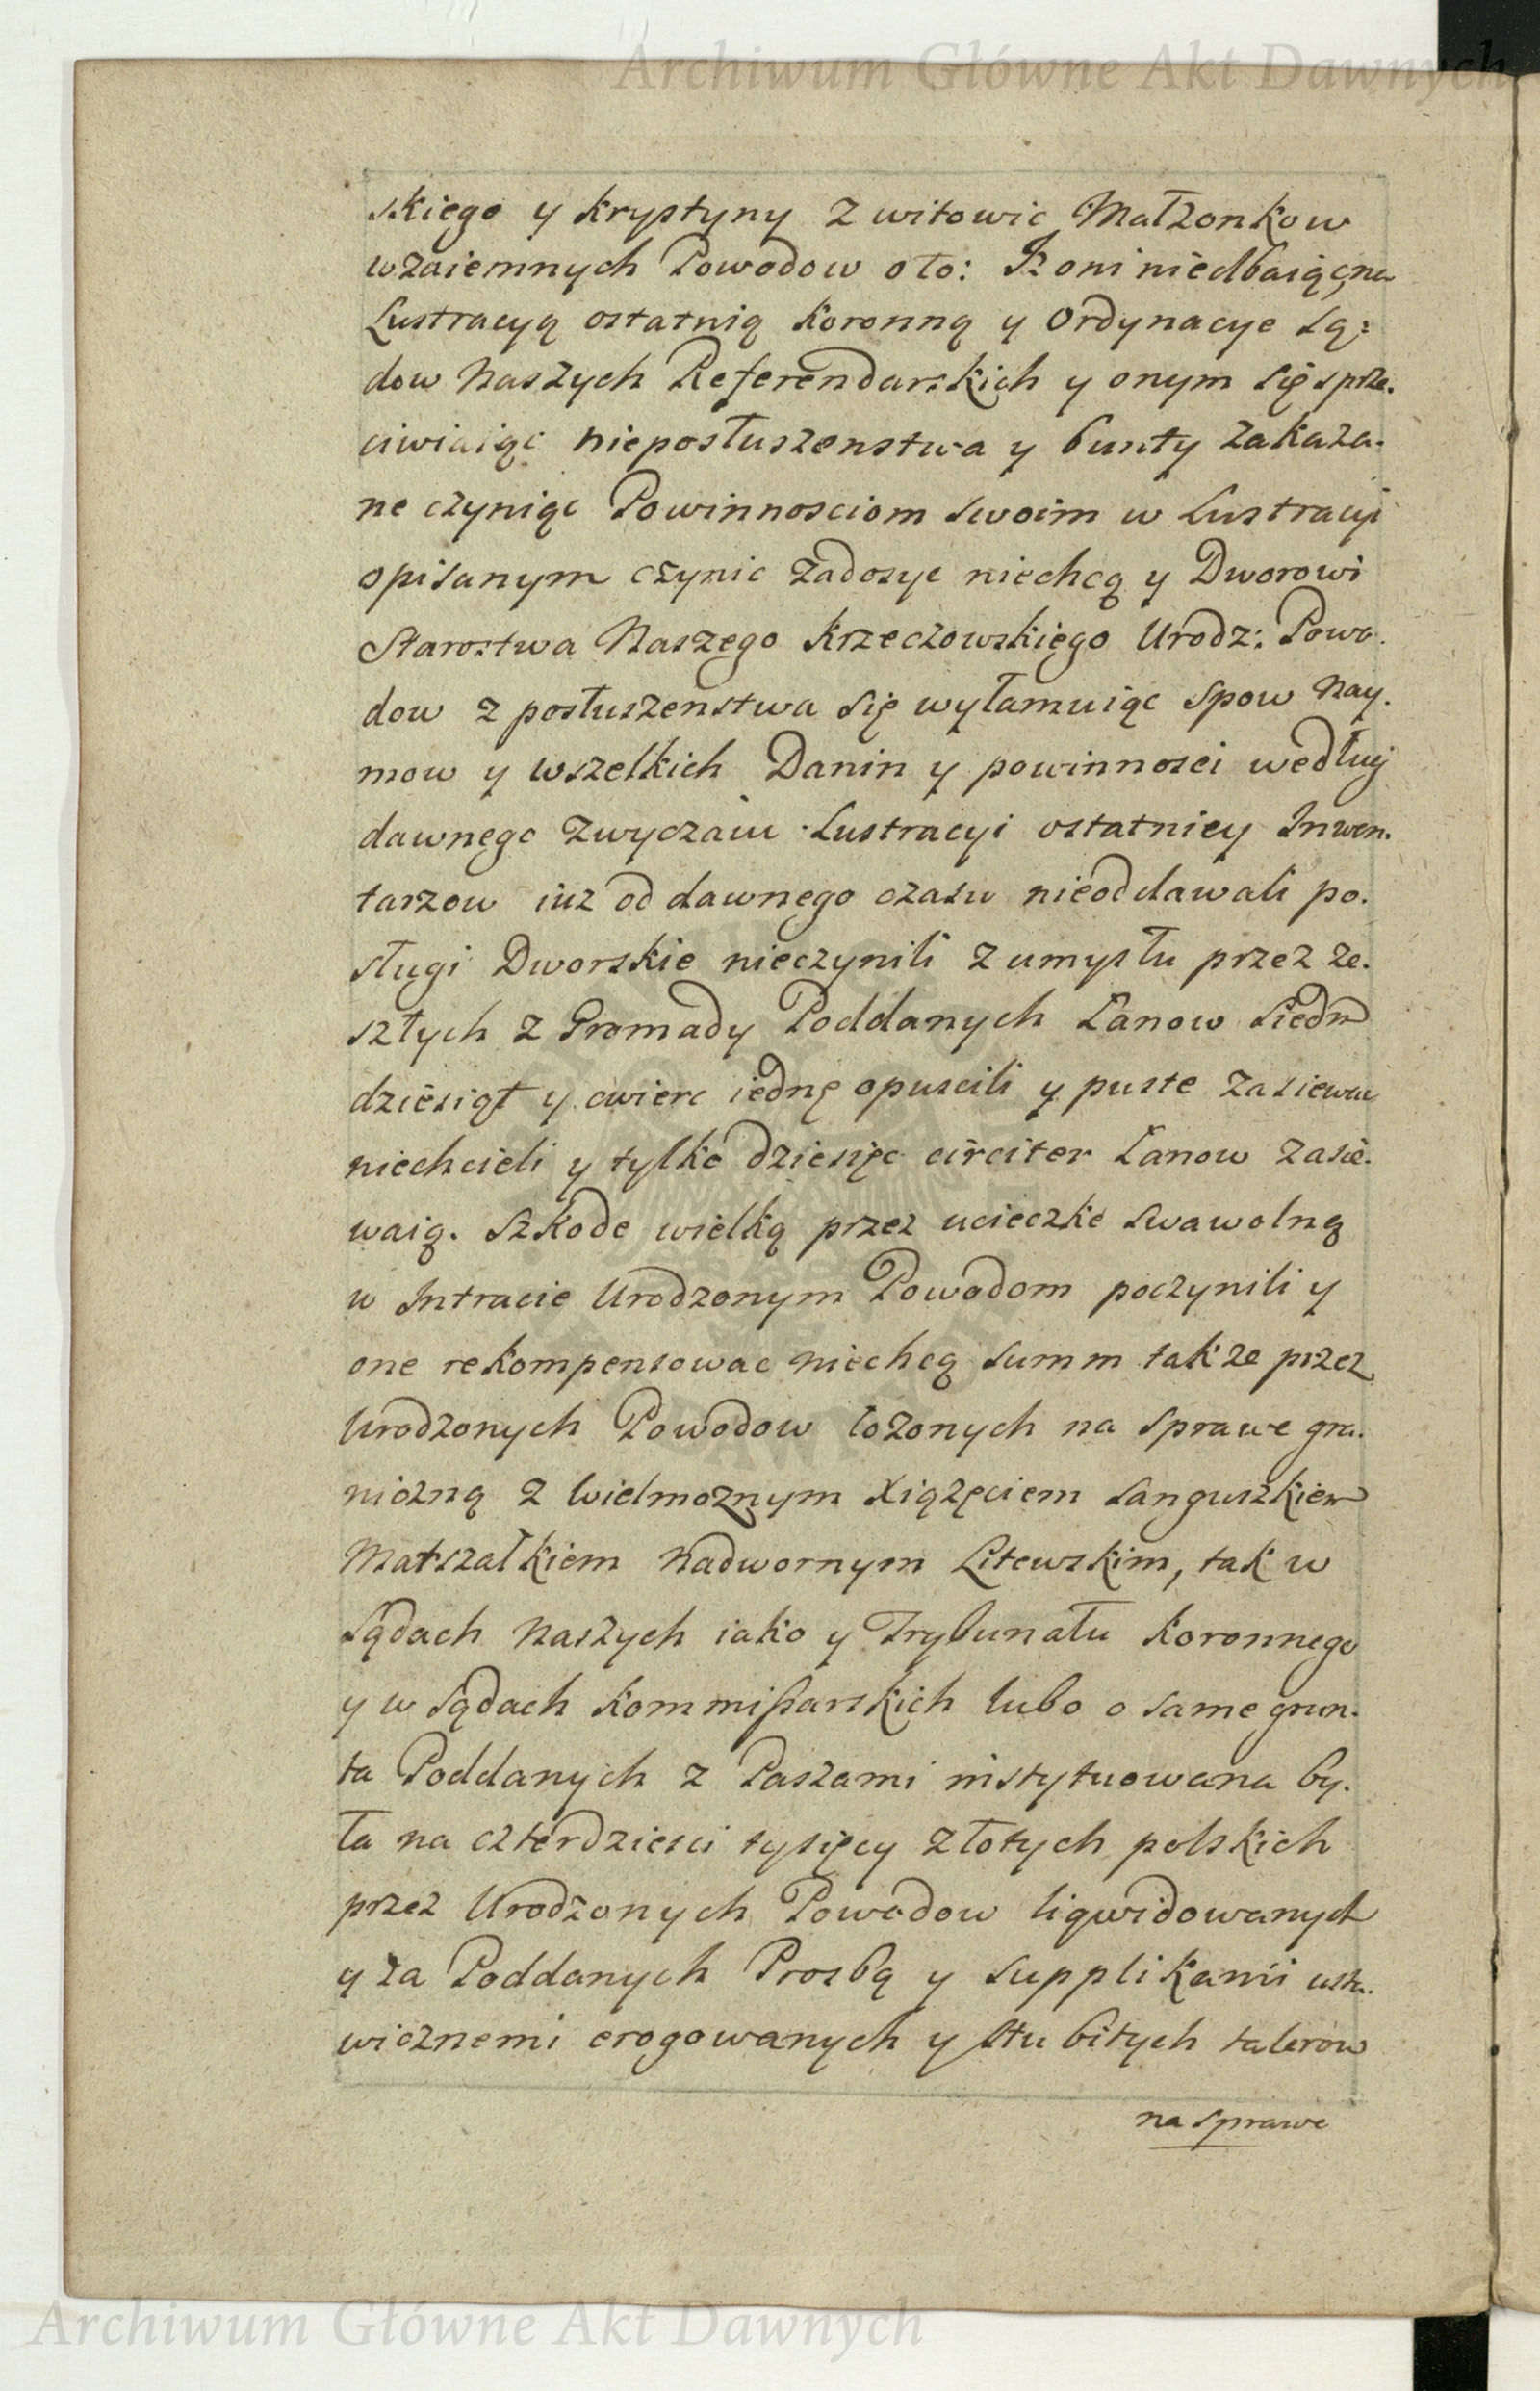 Archiwum Główne Akt Dawnych
skiego y Krystyny z witowic Małzonkow
wzaiemnych Powodow oto: Iz oni niedbaiąc na
Lustracyą ostatnią Koronną y Ordynacye Są:
dow Naszych Referendarskich y onym się sprze.
ciwiaiąc nieposłuszenstwa y bunty zakaza.
ne czyniąc Powinnosciom swoim w Lustracyi
opisanym czynic zadosyc niechcą y Dworowi
Starostwa Naszego Krzeczowskiego Urodz: Powo.
dow z posłuszenstwa się wyłamuiąc spow Nay.
mow y wszelkich Danin y powinnosci według
dawnego zwyczaiu Lustracyi ostatniey Inwen.
tarzow iuz od dawnego czasu nieoddawali po.
sługi Dworskie nieczynili z umysłu przez ze.
szłych z Gromady Poddanych Łanow Siedm
dziesiąt y cwierc iednę opuscili y puste zasiewac
niechcieli y tylko dziesięc circiter Łanow zasie.
waią. Szkode wielką przez ucieczke swawolną
w Intracie Urodzonym Powodom poczynili y
one rekompensowac niechcą summ także przez
Urodzonych Powodow łozonych na sprawe gra.
niczną z Wielmoznym Xiązęciem Sanguszkiem
Marszałkiem Nadwornym Litewskim, tak w
Sądach Naszych iako y Trybunału Koronnego
y w Sądach Kommissarskich lubo o same grun.
ta Poddanych z Paszami instytuowana by.
ła na czterdziesci tysięcy złotych polskich
przez Urodzonych Powodow liqwidowanych
y za Poddanych Prozbą y supplikami usta.
wicznemi erogowanych y stu bitych talerow
na sprawe
Archiwum Główne Akt Dawnych